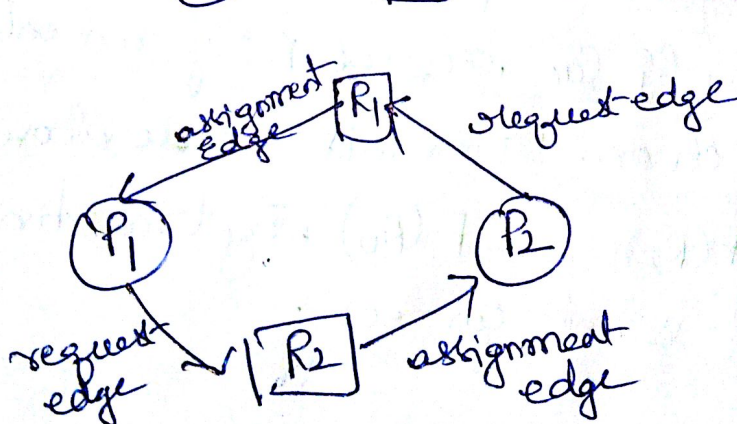 assignment
edge
R1
request edge
P1
P2
request
edge
R2
assignment
edge